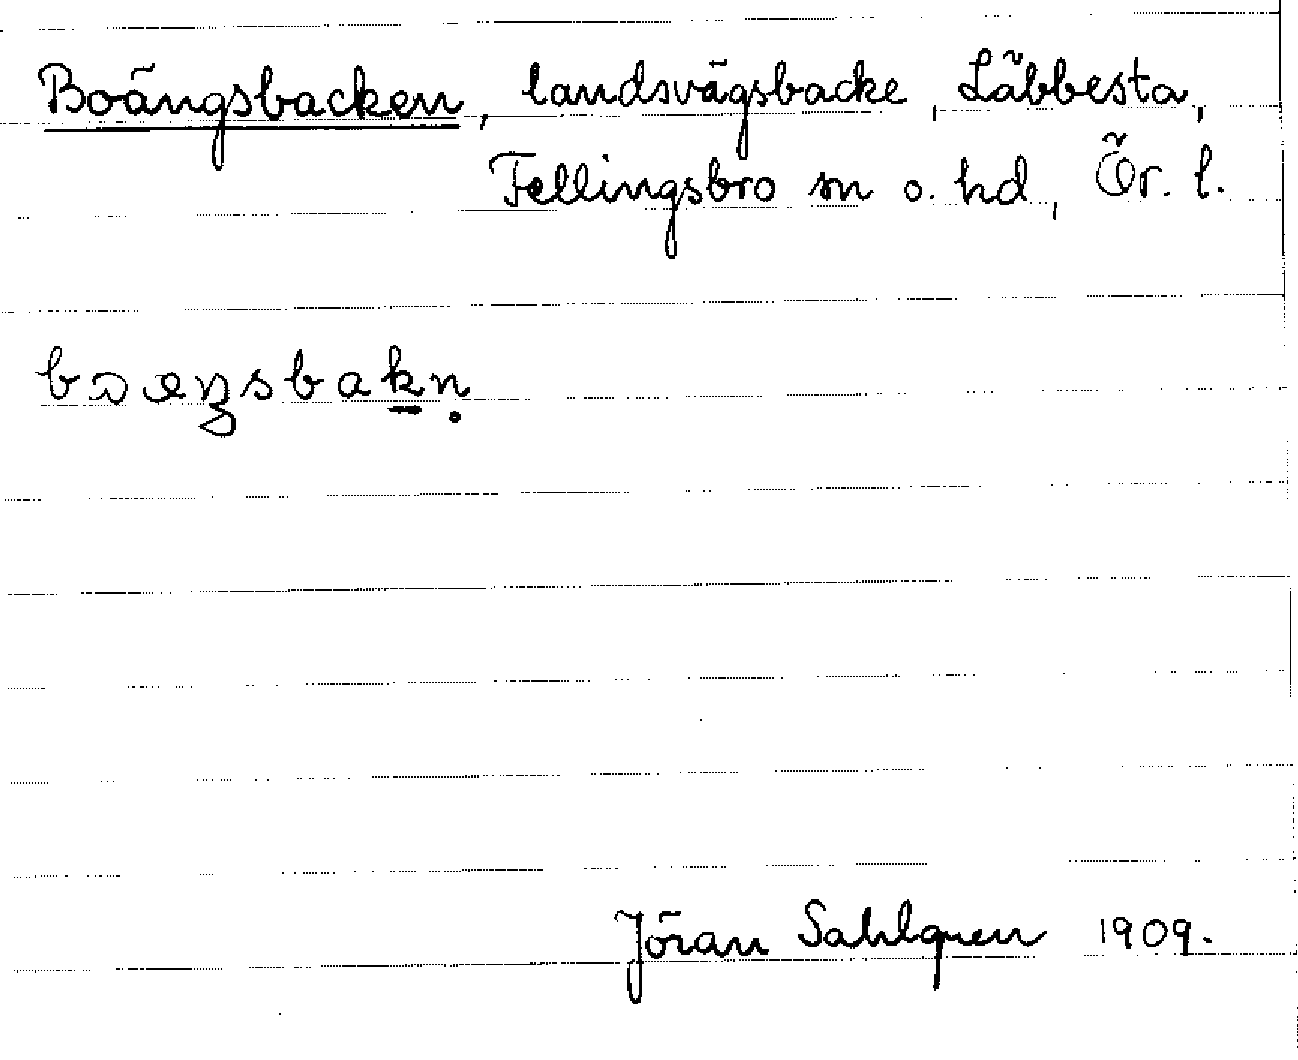 Boängsbacken, landsvägsbacke, Läbbesta,
Fellingsbro sn o. hd, Ör. l.
bωæŋsbakṇ
Jöran Sahlgren 1909.